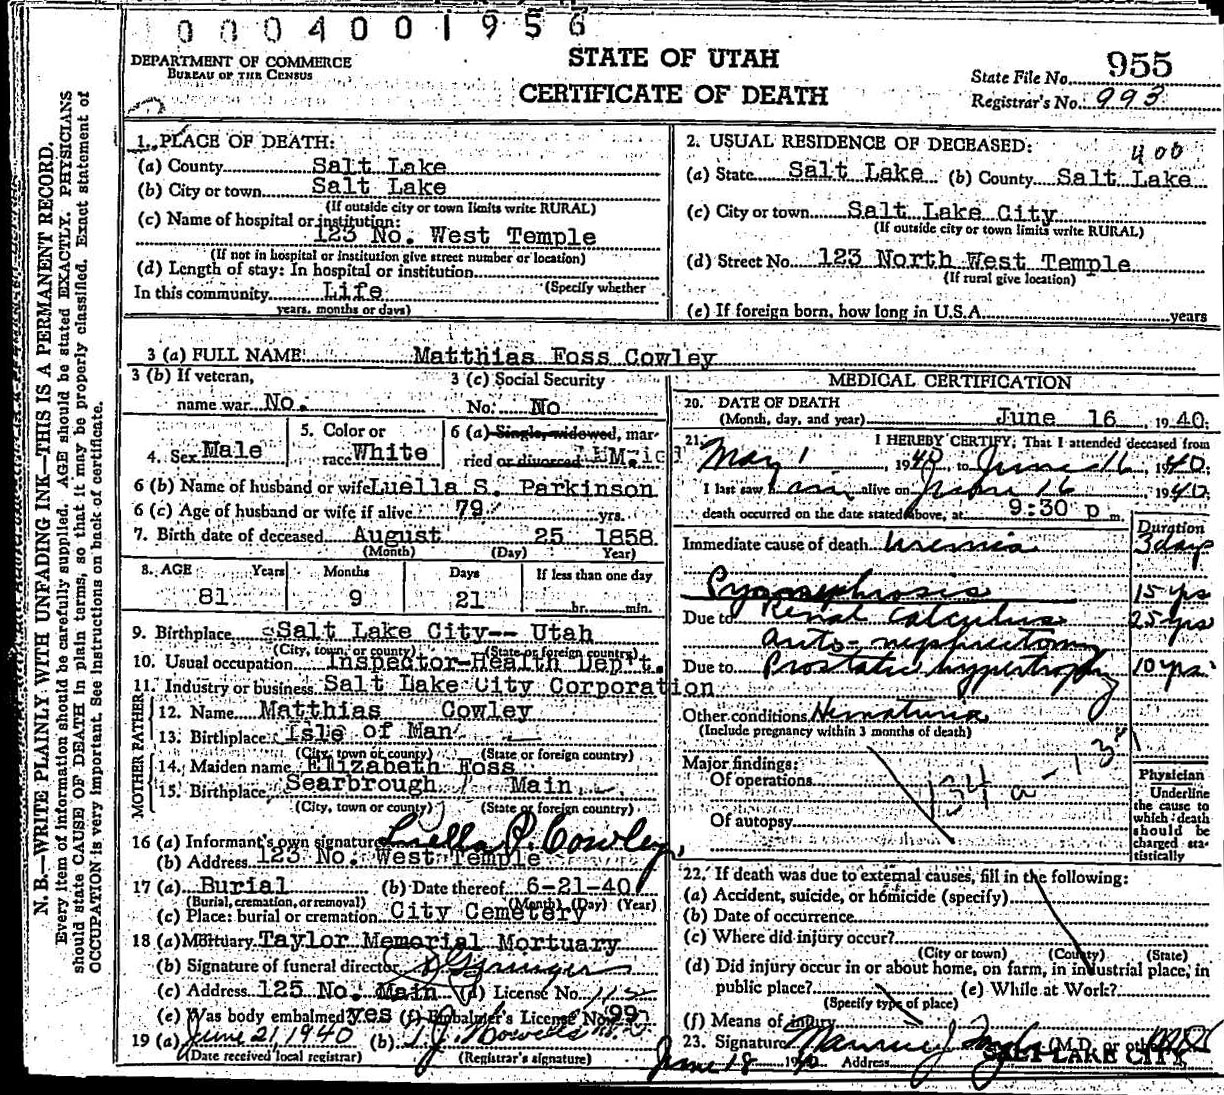 0 0 0 4 0 0 1 9 5 6
DEPARTMENT OF COMMERCE
BUREAU OF THE CENSUS
STATE OF UTAH
CERTIFICATE OF DEATH
State File No. 955
Registrar's No. 993
N. B.—WRITE PLAINLY WITH UNFADING INK—THIS IS A PERMANENT RECORD.
Every item of information should be carefully supplied. AGE should be stated EXACTLY. PHYSICIANS
should state CAUSE OF DEATH in plain terms, so that it may be properly classified. Exact statement of
OCCUPATION is very important. See instructions on back of certificate.
1. PLACE OF DEATH:
(a) County Salt Lake
(b) City or town Salt Lake
(If outside city or town limits write RURAL)
(c) Name of hospital or institution:
123 No. West Temple
(If not in hospital or institution give street number or location)
(d) Length of stay: In hospital or institution
In this community Life (Specify whether
years, months or days)
2. USUAL RESIDENCE OF DECEASED:
400
(a) State Salt Lake (b) County Salt Lake
(c) City or town Salt Lake City
(If outside city or town limits write RURAL)
(d) Street No. 123 North West Temple
(If rural give location)
(e) If foreign born, how long in U.S.A. years
3 (a) FULL NAME Matthias Foss Cowley
3 (b) If veteran,
name war No.
3 (c) Social Security
No. No
4. Sex Male
5. Color or
race White
6 (a) Single, widowed, mar-
ried or divorced
6 (b) Name of husband or wife Luella S. Parkinson
6 (c) Age of husband or wife if alive 79 yrs.
7. Birth date of deceased August 25 1858
(Month) (Day) Year)
8. AGE Years Months Days If less than one day
81 9 21 hr. min.
9. Birthplace Salt Lake City-- Utah
(City, town, or county) (State or foreign country)
10. Usual occupation Inspector-Health Dep't.
11. Industry or business Salt Lake City Corporation
FATHER
12. Name Matthias Cowley
13. Birthplace Isle of Man
(City, town or county) (State or foreign country)
MOTHER
14. Maiden name Elizabeth Foss
15. Birthplace Searbrough Main
(City, town or county) (State or foreign country)
16 (a) Informant's own signature Luella P. Cowley
(b) Address 123 No. West Temple
17 (a) Burial (b) Date thereof 6-21-40
(Burial, cremation, or removal) (Month) (Day) (Year)
(c) Place: burial or cremation City Cemetery
18 (a) Mortuary Taylor Memorial Mortuary
(b) Signature of funeral director
(c) Address 125 No. Main (d) License No. 112
(e) Was body embalmed? yes (f) Embalmer's License No. 99
19 (a) June 21, 1940 (b) T. J. Howells M.D.
(Date received local registrar) (Registrar's signature)
MEDICAL CERTIFICATION
20. DATE OF DEATH
(Month, day, and year) June 16 1940
21. I HEREBY CERTIFY, That I attended deceased from
May 1, 1940, to June 16 1940
I last saw him alive on June 16, 1940
death occurred on the date stated above, at 9:30 p m.
Duration
Immediate cause of death Uremia 3 days
Pyonephrosis 15 yrs
Due to Renal calculus 25 yrs
auto-nephrectomy
Due to Prostatic hypertrophy 10 yrs.
Other conditions Hematuria
(Include pregnancy within 3 months of death)
Major findings:
Of operations
134a - 137
Of autopsy
Physician
Underline
the cause to
which death
should be
charged sta-
tistically
22. If death was due to external causes, fill in the following:
(a) Accident, suicide, or homicide (specify)
(b) Date of occurrence
(c) Where did injury occur?
(City or town) (County) (State)
(d) Did injury occur in or about home, on farm, in industrial place, in
public place? (e) While at Work?
(Specify type of place)
(f) Means of injury
23. Signature (M.D. or other)
June 18 1940 Address SALT LAKE CITY